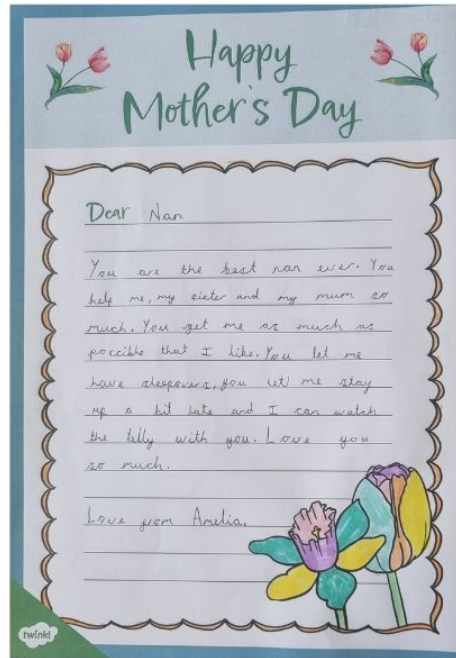 Happy
Mother's Day
Dear Nan
You are the best nan ever. You
help me, my sister and my mum so
much. You get me as much as
possible that I like. You let me
have sleepovers, you let me stay
up a bit late and I can watch
the telly with you. Love you
so much.
Love from Amelia.
twinkl